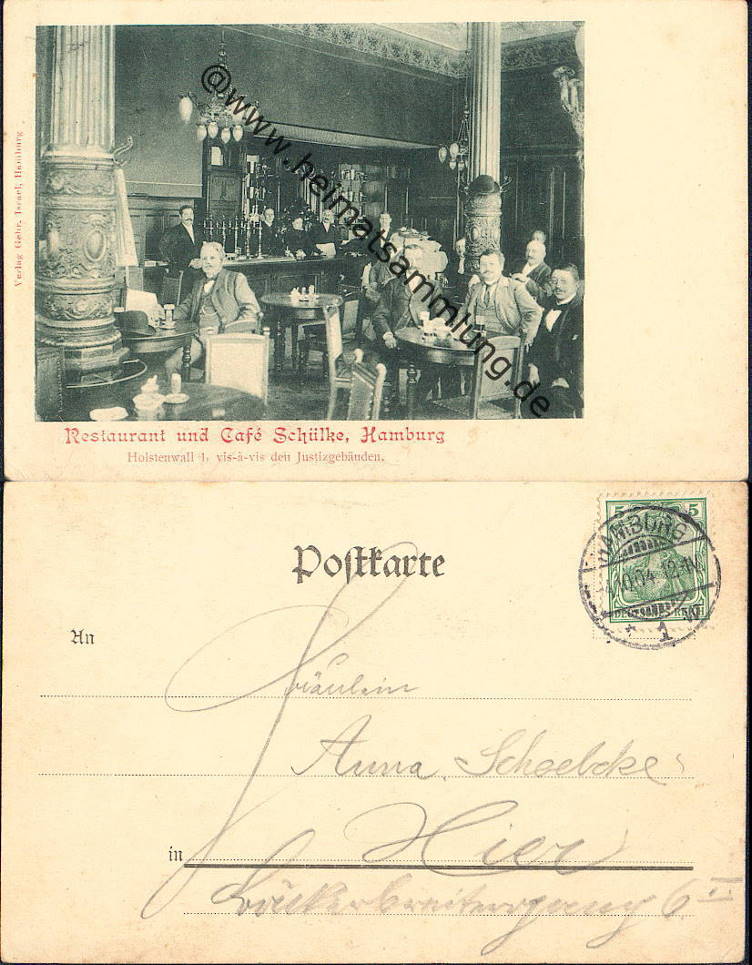 Verlag Gebr. Israel, Hamburg
@www.heimatsammlung.de
Restaurant und Café Schülke, Hamburg
Holstenwall 1, vis-à-vis den Justizgebäuden.
Postkarte
5 5
HAMBURG
10.04 12-1N.
DEUTSCHES REICH
* 1
An
Fräulein
Anna Schoelcke
in Hier
Bäckerbreitergang 6 II